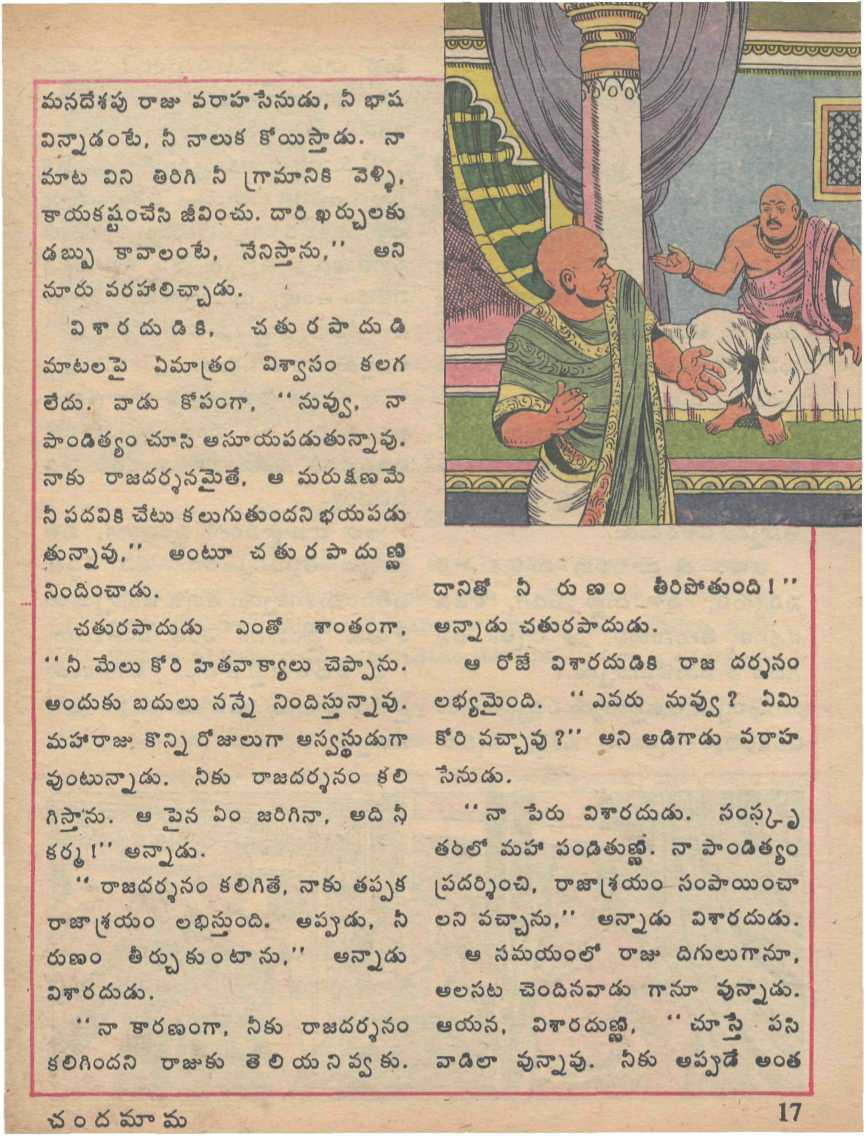 మనదేశపు రాజు వరాహసేనుడు, నీ భాష
విన్నాడంటే, నీ నాలుక కోయిస్తాడు. నా
మాట విని తిరిగి నీ గ్రామానికి వెళ్ళి,
కాయకష్టంచేసి జీవించు. దారి ఖర్చులకు
డబ్బు కావాలంటే, నేనిస్తాను,'' అని
నూరు వరహాలిచ్చాడు.
విశారదుడికి, చతురపాదుడి
మాటలపై ఏమాత్రం విశ్వాసం కలగ
లేదు. వాడు కోపంగా, ''నువ్వు, నా
పాండిత్యం చూసి అసూయపడుతున్నావు.
నాకు రాజదర్శనమైతే, ఆ మరుక్షణమే
నీ పదవికి చేటు కలుగుతుందని భయపడు
తున్నావు,'' అంటూ చతురపాదుణ్ణి
నిందించాడు.
చతురపాదుడు ఎంతో శాంతంగా,
''నీ మేలు కోరి హితవాక్యాలు చెప్పాను.
అందుకు బదులు నన్నే నిందిస్తున్నావు.
మహారాజు కొన్ని రోజులుగా అస్వస్థుడుగా
వుంటున్నాడు. నీకు రాజదర్శనం కలి
గిస్తాను. ఆ పైన ఏం జరిగినా, అది నీ
కర్మ!'' అన్నాడు.
''రాజదర్శనం కలిగితే, నాకు తప్పక
రాజాశ్రయం లభిస్తుంది. అప్పుడు, నీ
రుణం తీర్చుకుంటాను,'' అన్నాడు
విశారదుడు.
''నా కారణంగా, నీకు రాజదర్శనం
కలిగిందని రాజుకు తెలియనివ్వకు.
దానితో నీ రుణం తీరిపోతుంది!''
అన్నాడు చతురపాదుడు.
ఆ రోజే విశారదుడికి రాజ దర్శనం
లభ్యమైంది. ''ఎవరు నువ్వు? ఏమి
కోరి వచ్చావు?'' అని అడిగాడు వరాహ
సేనుడు.
''నా పేరు విశారదుడు. సంస్కృ
తంలో మహా పండితుణ్ణి. నా పాండిత్యం
ప్రదర్శించి, రాజాశ్రయం సంపాయించా
లని వచ్చాను,'' అన్నాడు విశారదుడు.
ఆ సమయంలో రాజు దిగులుగానూ,
అలసట చెందినవాడు గానూ వున్నాడు.
ఆయన, విశారదుణ్ణి, ''చూస్తే పసి
వాడిలా వున్నావు. నీకు అప్పుడే అంత
చందమామ
17